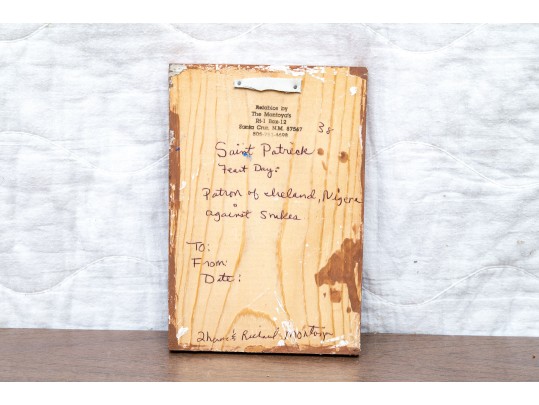 Retablos by
The Montoya's
Rt-1 Box-12
Santa Cruz, N.M. 87567
38
Saint Patrick
Feast Day:
Patron of Ireland, Nigera
against Snakes
To:
From:
Date:
Richard Montoya